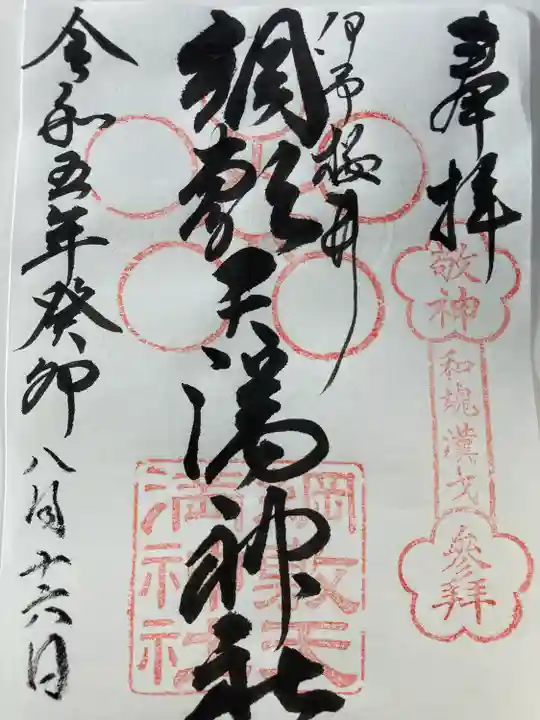 奉拝
敬神
和魂漢才
參拜
伊予桜井
綱敷天満神社
綱敷天
満神社
令和五年癸卯八月十六日